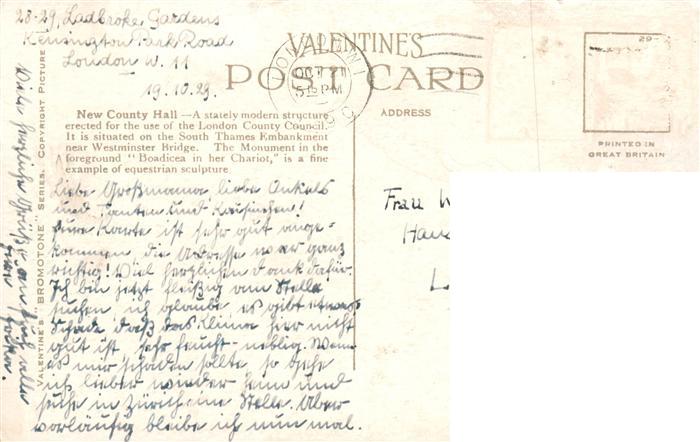 28-29, Ladbroke Gardens
Kensington Park Road
London W. 11
19.10.29.
VALENTINE'S
POST CARD
LONDON
OCT 21
5 15 PM
29-
PRINTED IN
GREAT BRITAIN
ADDRESS
New County Hall —A stately modern structure
erected for the use of the London County Council.
It is situated on the South Thames Embankment
near Westminster Bridge. The Monument in the
foreground "Boadicea in her Chariot," is a fine
example of equestrian sculpture
Liebe Großmama liebe Onkels
und Tanten und Kusinchen!
Eure Karte ist sehr gut ange-
kommen, die Adresse war ganz
richtig! Viel herzlichen Dank dafür.
Ich bin jetzt fleißig am Stelle
suchen, ich glaube, es gibt etwas
Schade, daß das Klima hier nicht
gut ist, sehr feucht-neblig. Wenn
es mir schaden sollte, so gehe
ich lieber wieder heim und
suche in Zürich eine Stelle. Aber
vorläufig bleibe ich nun mal.
Viele herzliche Grüße an Euch alle
Frau W
Hau
L
VALENTINE'S "BROMOTONE" SERIES. COPYRIGHT PICTURE